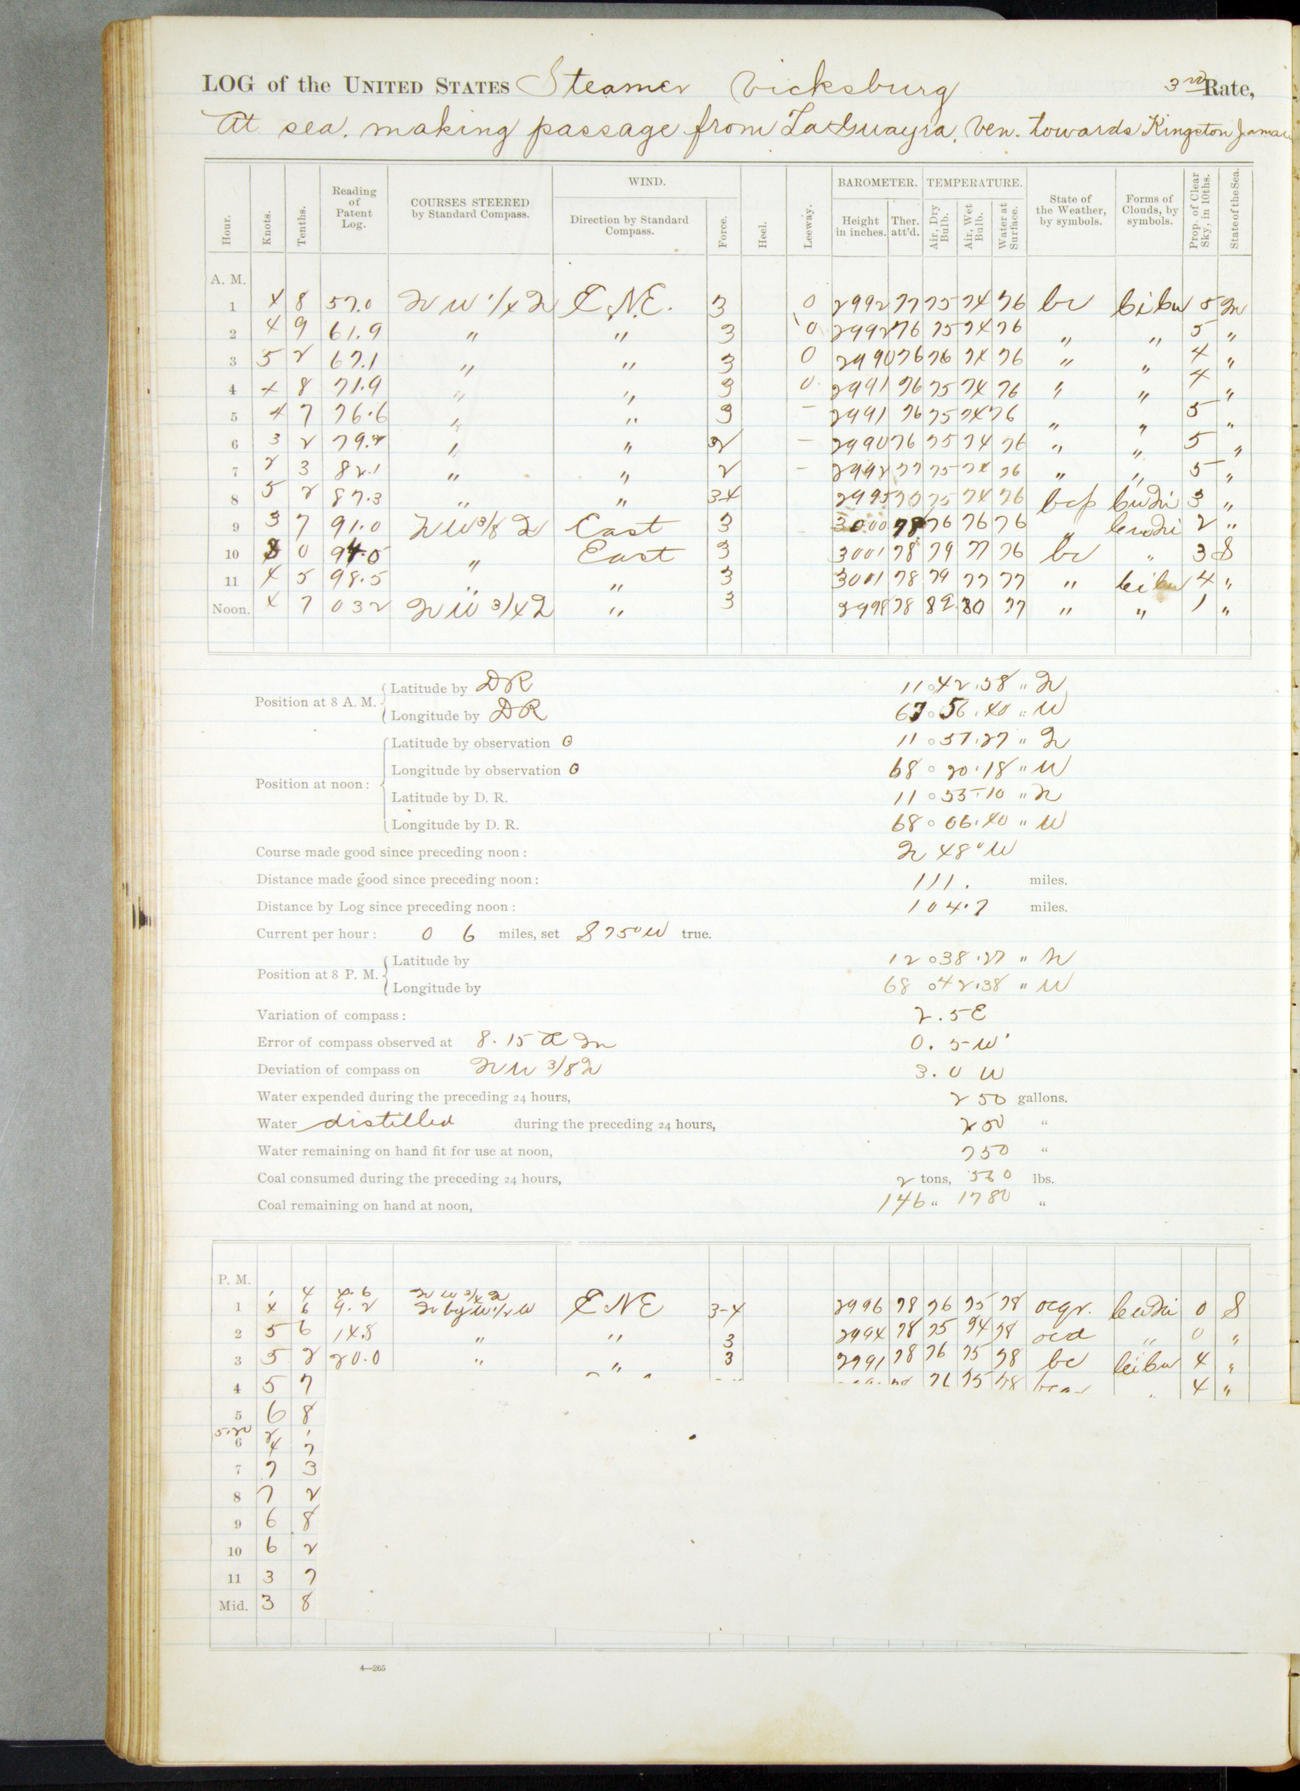 LOG of the UNITED STATES Steamer Vicksburg 3rd Rate,
At sea. making passage from La Guayra, Ven. towards Kingston Jamai
Hour. Knots. Tenths. Reading of Patent Log. COURSES STEERED by Standard Compass. WIND. Direction by Standard Compass. Force. Heel. Leeway. BAROMETER. Height in inches. Ther. att'd. TEMPERATURE. Air, Dry Bulb. Air, Wet Bulb. Water at Surface. State of the Weather, by symbols. Forms of Clouds, by symbols. Prop. of Clear Sky, in 10ths. State of the Sea.
A. M.
1 4 8 57.0 NW 1/4 N ENE. 3 0 2992 77 75 74 76 bc 5 m
2 4 9 61.9 " " 3 0 2992 76 75 74 76 " " 5 "
3 5 2 67.1 " " 3 0 2990 76 76 74 76 " " 4 "
4 4 8 71.9 " " 3 0 2991 76 75 74 76 " " 4 "
5 4 7 76.6 " " 3 – 2991 76 75 74 76 " " 5 "
6 3 2 " " 2 – 2990 76 75 74 76 " " 5 "
7 2 3 82.1 " " 2 – 2992 77 75 74 76 " " 5 "
8 5 2 87.3 " " 3-4 2995 75 74 76 bcp 3 "
9 3 7 91.0 NW 3/8 N East 3 3000 78 76 76 76 " 2 "
10 3 0 94.0 " East 3 3001 78 79 77 76 bc " 3 S
11 4 5 98.5 " " 3 3001 78 79 77 77 " 4 "
Noon. 4 7 03 2 NW 3/4 N " 3 2998 78 82 80 77 " " 1 "
Position at 8 A. M. Latitude by DR 11 ° 42 . 38 " N
Longitude by DR 67 ° 56 . 40 " W
Position at noon: Latitude by observation ⊙ 11 ° 57 . 27 " N
Longitude by observation ⊙ 68 ° 20 . 18 " W
Latitude by D. R. 11 ° 55 . 10 " N
Longitude by D. R. 68 ° 06 . 40 " W
Course made good since preceding noon: N 48° W
Distance made good since preceding noon: 111. miles.
Distance by Log since preceding noon: 104.7 miles.
Current per hour: 0 6 miles, set S 75° W true.
Position at 8 P. M. Latitude by 12 ° 38 . 27 " N
Longitude by 68 ° 42 . 38 " W
Variation of compass: 2.5 E
Error of compass observed at 8.15 A m 0.5 W
Deviation of compass on NW 3/8 N 3.0 W
Water expended during the preceding 24 hours, 250 gallons.
Water distilled during the preceding 24 hours, 200 "
Water remaining on hand fit for use at noon, 750 "
Coal consumed during the preceding 24 hours, 2 tons, 530 lbs.
Coal remaining on hand at noon, 146 " 1780 "
P. M.
1 4 4.6 NW 3/4 N
1 4 6 9.2 N by W 1/2 W ENE 3-4 2996 78 76 75 78 ocqr. 0 S
2 5 6 14.8 " " 3 2994 78 75 74 78 ocd " 0 "
3 5 2 20.0 " " 3 2991 78 76 75 78 bc 4 "
4 5 7 76 75 78 4 "
5 6 8
5.20 2 1
6 4 7
7 7 3
8 7 2
9 6 8
10 6 2
11 3 7
Mid. 3 8
4—265